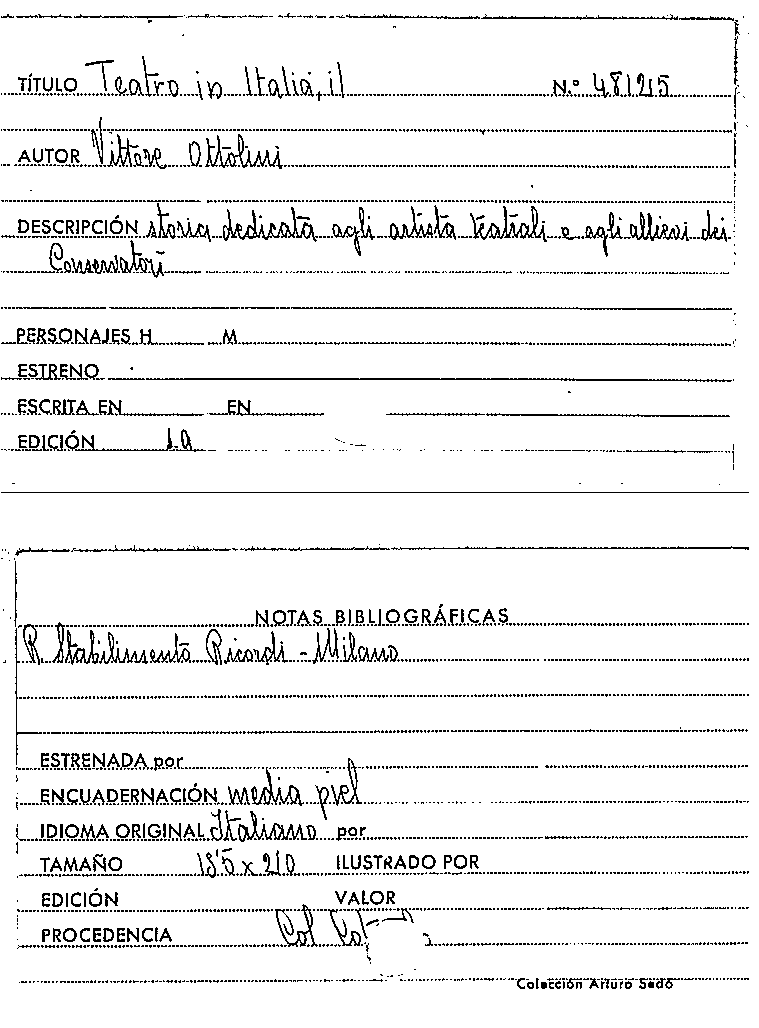 TÍTULO Teatro in Italia, il N.º 48125
AUTOR Vittore Ottolini
DESCRIPCIÓN storia dedicata agli artista teatrali e agli allievi dei
Conservatori
PERSONAJES H M
ESTRENO
ESCRITA EN EN
EDICIÓN 1a
NOTAS BIBLIOGRÁFICAS
R. Stabilimento Ricordi - Milano
ESTRENADA por
ENCUADERNACIÓN media piel
IDIOMA ORIGINAL Italiano por
TAMAÑO x 210 ILUSTRADO POR
EDICIÓN VALOR
PROCEDENCIA Col
Colección Arturo Sedó